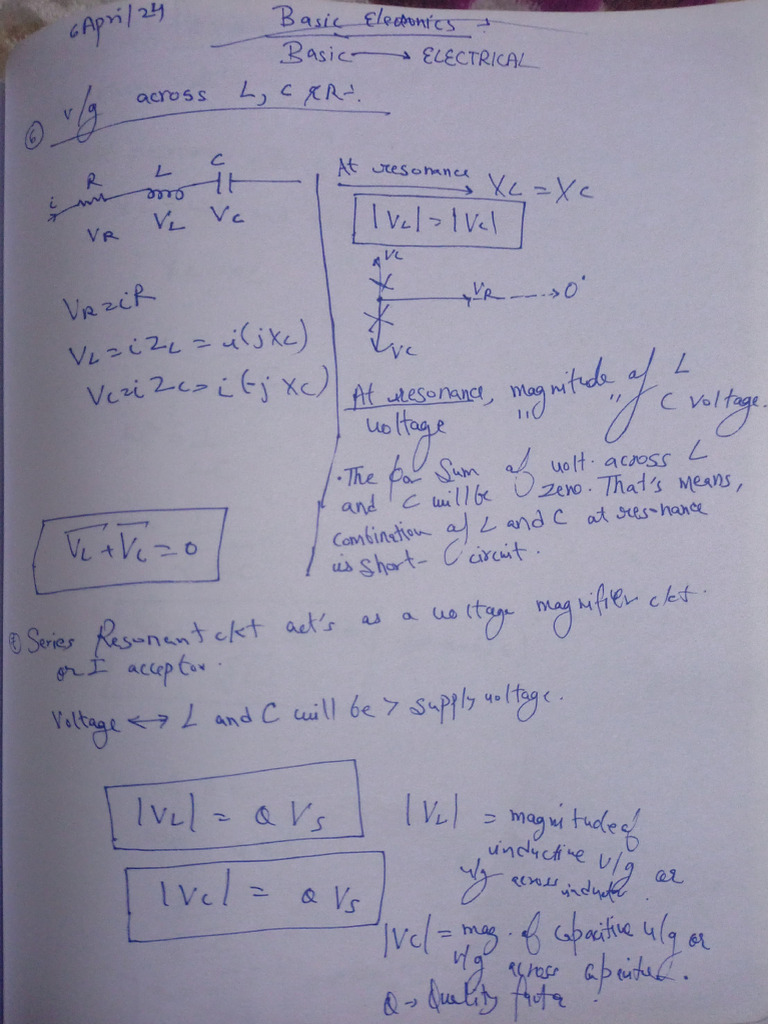 6April/24
Basic Electonics :-
Basic → ELECTRICAL
⑥ v/g across L, C & R:-
R L C
i
VR VL VC
VR = iR
VL = i ZL = i(jXL)
VC = i ZC = i(-j XC)
VL + VC = 0
At resonance → XL = XC
|VL| = |VC|
VL
VR ---→ 0°
VC
At resonance, magnitude of L
voltage '' '' C voltage.
• The Sum of volt. across L
and C will be zero. That's means,
combination of L and C at res-nance
is short- circuit.
⑦ Series Resonant ckt act's as a voltage magnifier ckt.
or I acceptor.
Voltage ↔ L and C will be > supply voltage.
|VL| = Q VS
|VC| = Q VS
|VL| = magnitude of
inductive v/g or
v/g across inductor
|VC| = mag. of capacitive v/g or
v/g across capacitor.
Q → Quality factor